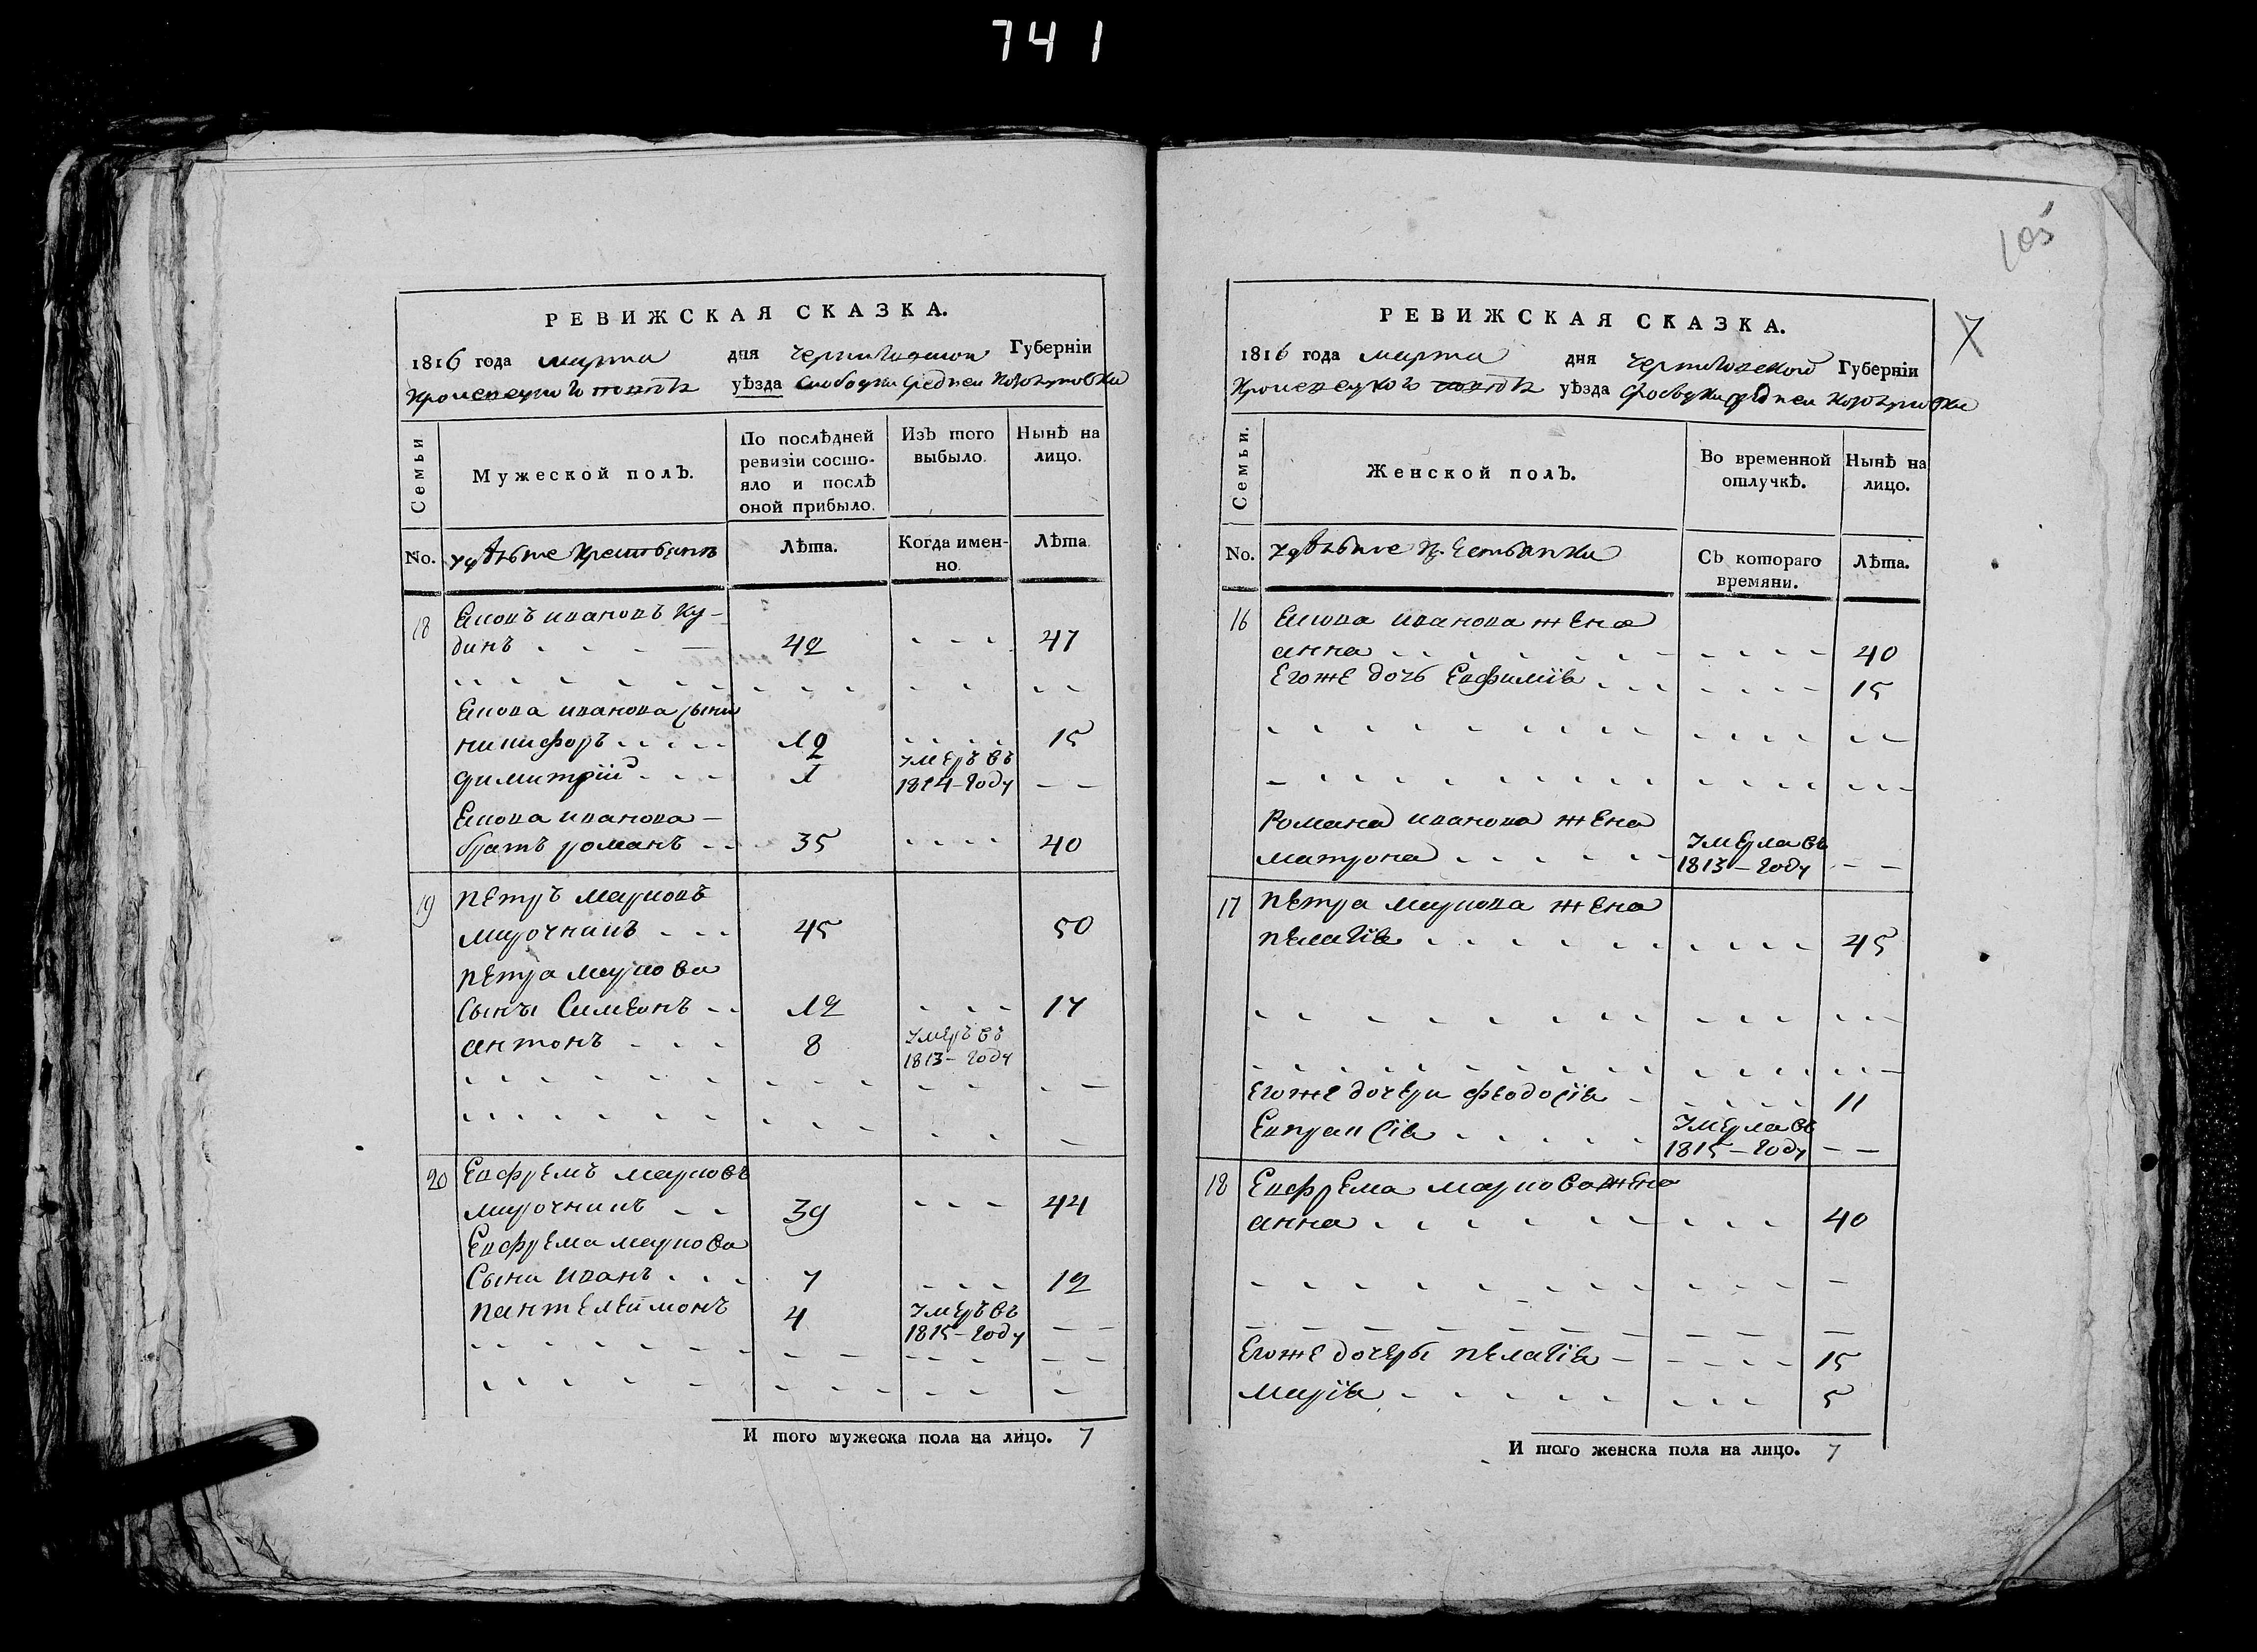 741
РЕВИЖСКАЯ СКАЗКА.
1816 года марта дня Черниговской Губерніи
уѣзда Слободки Средней
Семьи
Мужеской полъ.
По послѣдней ревизіи состояло и послѣ оной прибыло.
Изъ того выбыло.
Нынѣ на лицо.
No.
Лѣта.
Когда именно.
Лѣта
18 Іиовъ ивановъ Ку-
динъ 42 47
Іиова иванова сыни
никифоръ 12 15
димитрій 1 Умеръ въ 1814-году
Іиова иванова
братъ романъ 35 40
19 петръ марковъ
мирочникъ 45 50
петра маркова
Сыны Симеонъ 12 17
антонъ 8 Умеръ въ 1813-году
20 Евфремъ марковъ
мирочникъ 39 44
Евфрема маркова
Сыни иванъ 7 12
пантелеймонъ 4 Умеръ въ 1815-году
И того мужеска пола на лицо. 7
105
7
РЕВИЖСКАЯ СКАЗКА.
1816 года марта дня Черниговской Губерніи
уѣзда Слободки Средней
Семьи.
Женской полъ.
Во временной отлучкѣ.
Нынѣ на лицо.
No.
Съ котораго времяни.
Лѣта.
16 иванова жена
анна 40
Егоже дочь Евфимія 15
Романа иванова жена
матрона Умерла въ 1813-году
17 петра маркова жена
пелагія 45
Егоже дочери феодосія 11
Евпраксія Умерла въ 1815-году
18 Евфрема маркова жена
анна 40
Егоже дочеры пелагія 15
марія 5
И того женска пола на лицо. 7